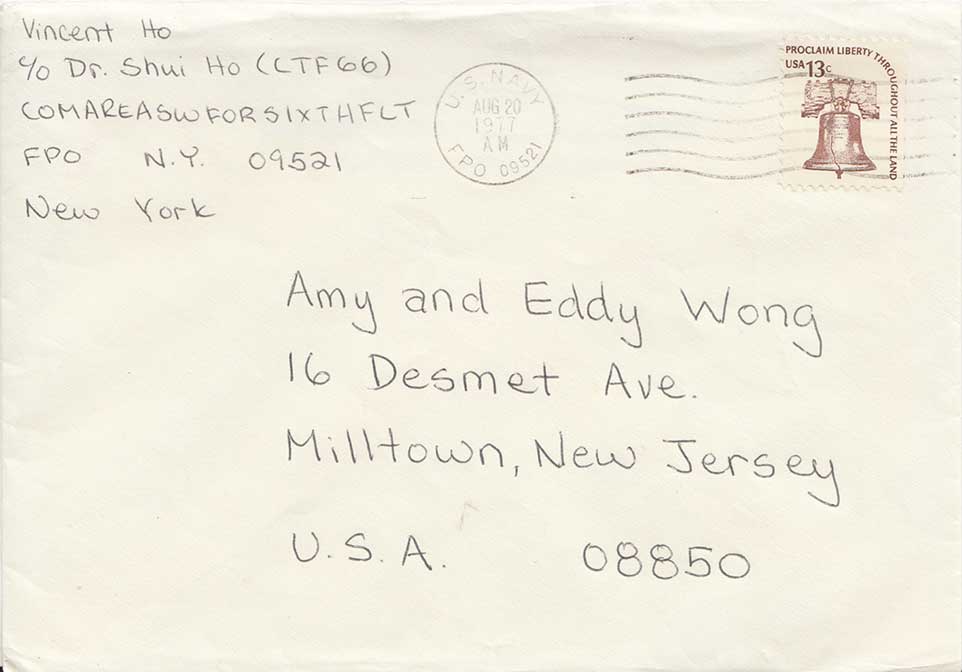 Vincent Ho
c/o Dr. Shui Ho (CTF66)
COMAREASWFORSIXTHFLT
FPO N.Y. 09521
New York
U.S. NAVY
AUG 20
1977
AM
FPO 09521
PROCLAIM LIBERTY THROUGHOUT ALL THE LAND
USA 13c
Amy and Eddy Wong
16 Desmet Ave.
Milltown, New Jersey
U.S.A. 08850